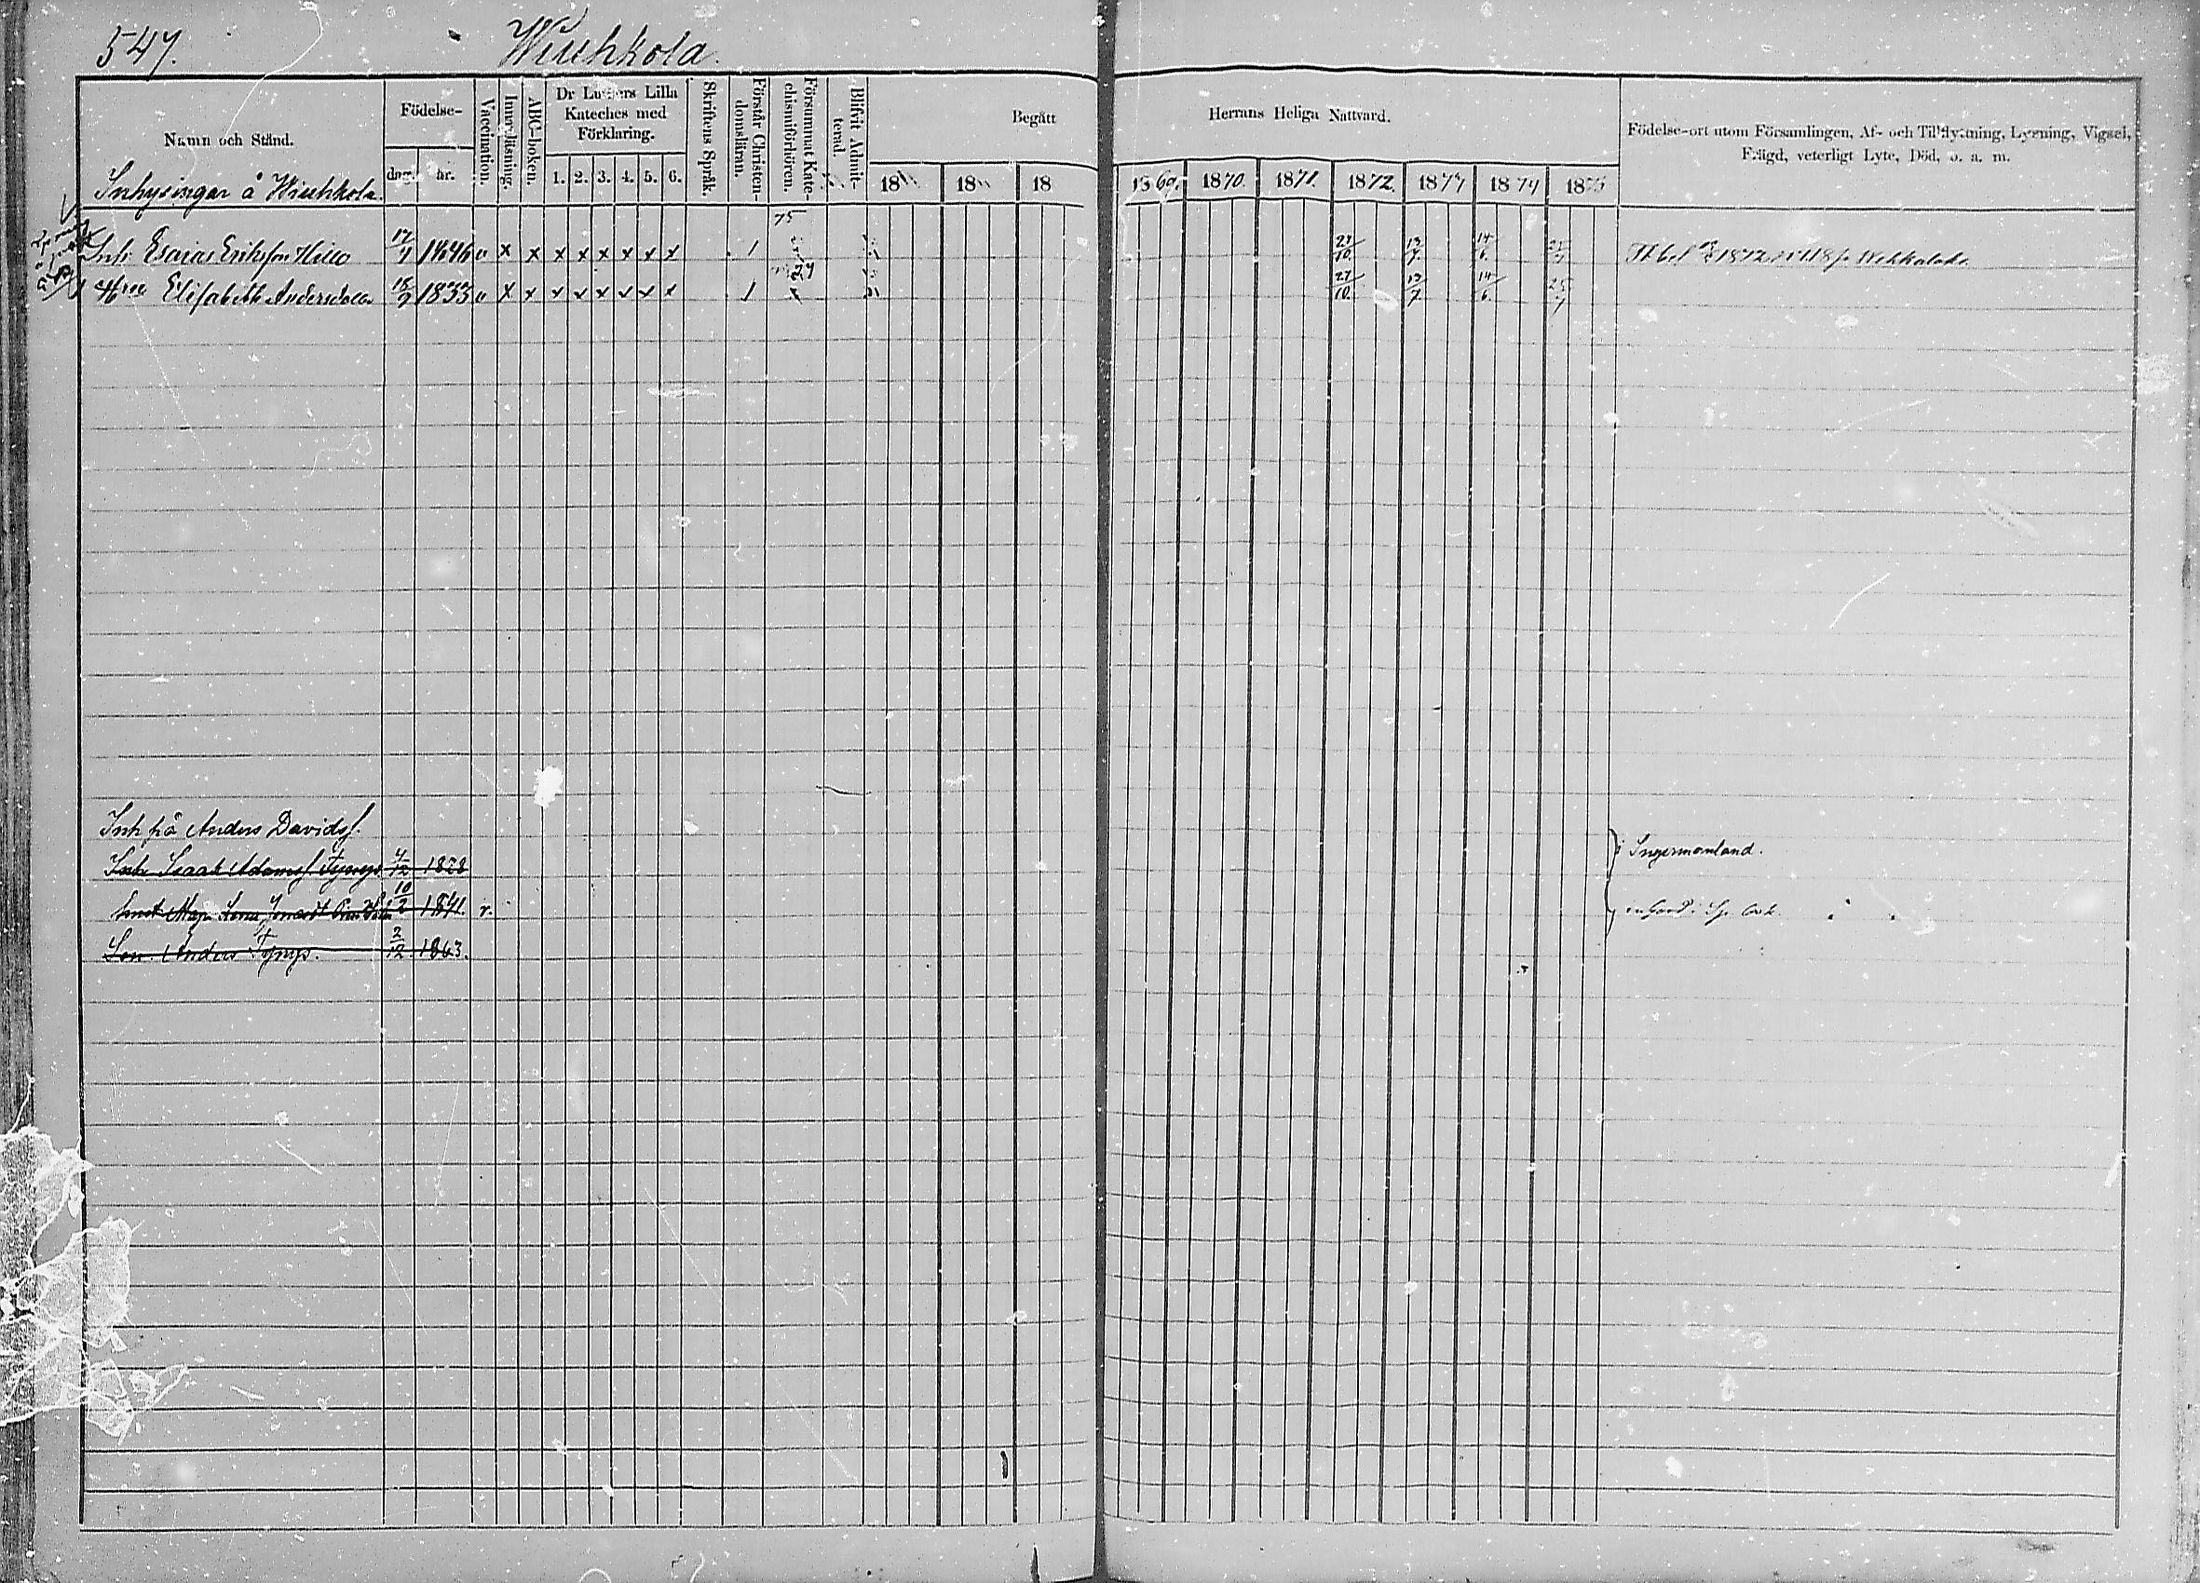 547. Wiuhkola.
Namn och Stånd. Födelse- dag. år. Vaccination. Innanläsning. ABC-boken. Dr Luthers Lilla Kateches med Förklaring. 1. 2. 3. 4. 5. 6. Skriftens Språk. Förstår Christendomsläran. Försummat Katechismiförhören. Blifvit Admitterad. Begått Herrans Heliga Nattvard. 18 18 18 1869. 1870. 1871. 1872. 1873 1874 1875 Födelse-ort utom Församlingen, Af- och Tillflyttning, Lysning, Vigsel, Frägd, veterligt Lyte, Död, o. a. m.
Inhysingar å Wiuhkola.
75
Inh. Esaias Eriksson Hillo 17/4 1846 v x x x x x x x x 1 27/10. 13/7. 14/6. 25/7 1872
Hru Elisabeth Andersdotter 15/9 1833 v x x x x x x x x 1 x 27/10. 13/7. 14/6. 25/7
Inh på Anders Davidss.
Inh. Isaak Adamss. Tymys 4/12 1828 Ingermanland.
Maja Lena 10/2 1841. v.
Son. Anders Tymys. 2/12 1863.